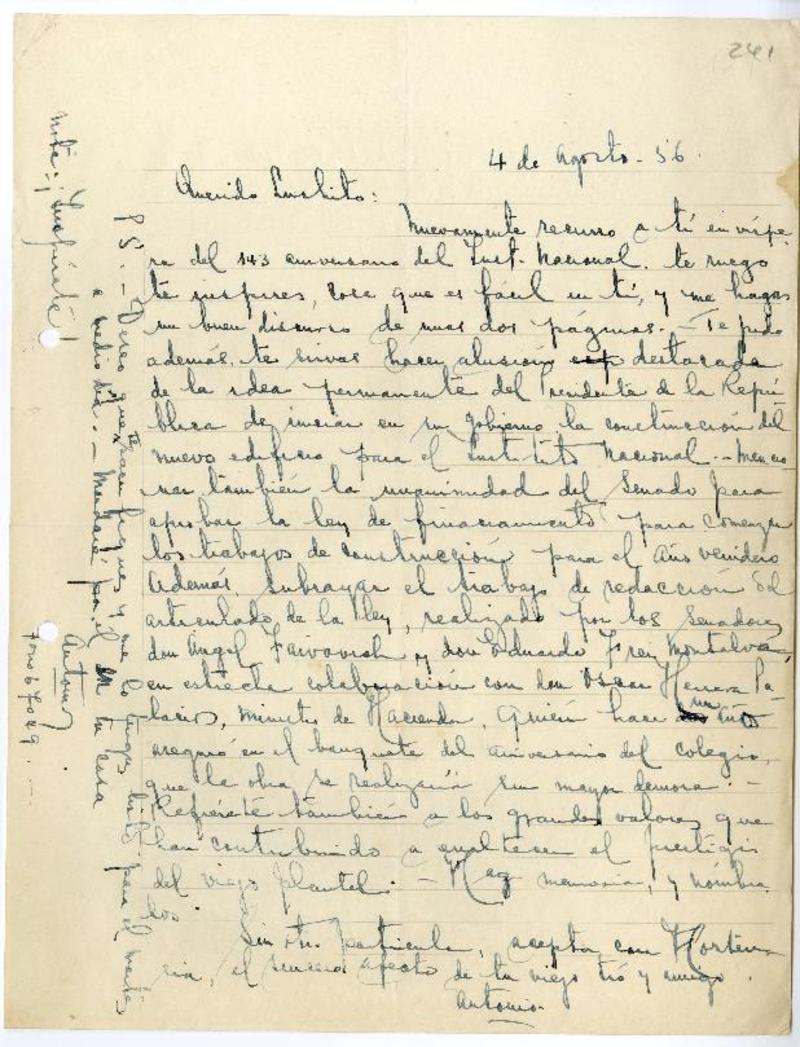 241
4 de Agosto - 56.
Querido Luchito:
Nuevamente recurro a tí en víspe-
ra del 143 aniversario del Inst. Nacional. te ruego
te inspires, cosa que es fácil en tí, y me hagas
un buen discurso de unas dos páginas. - Te pido
además, te sirvas hacer alusión destacada
de la idea permanente del Presidente de la Repú-
blica de iniciar en su gobierno la construcción del
nuevo edificio para el Instituto Nacional. - Mencio-
nar también la unanimidad del Senado para
aprobar la ley de financiamiento para comenzar
los trabajos de construcción para el año venidero
Además, subrayar el trabajo de redacción del
articulado de la ley, realizado por los Senadores
don Angel Faivovich y don Eduardo Frei Montalva,
en estrecha colaboración con don Oscar Herrera Pa-
lacios, Ministro de Hacienda, quién hace un año
aseguró en el banquete del aniversario del colegio,
que la obra se realizaría sin mayor demora. -
Refiérete también a los grandes valores que
han contribuido a enaltecer el prestigio
del viejo plantel. - Haz memoria, y nómbra-
los.
Sin otro particular, acepta, con Horten-
cia, el sincero afecto de tu viejo tío y amigo.
Antonio.
P.S. - Deseo que te hagas y me lo tengas listo para el martes
a medio día. - Mandaré por él a tu casa
Antonio
Fono
Nota: ¡Inspírate!